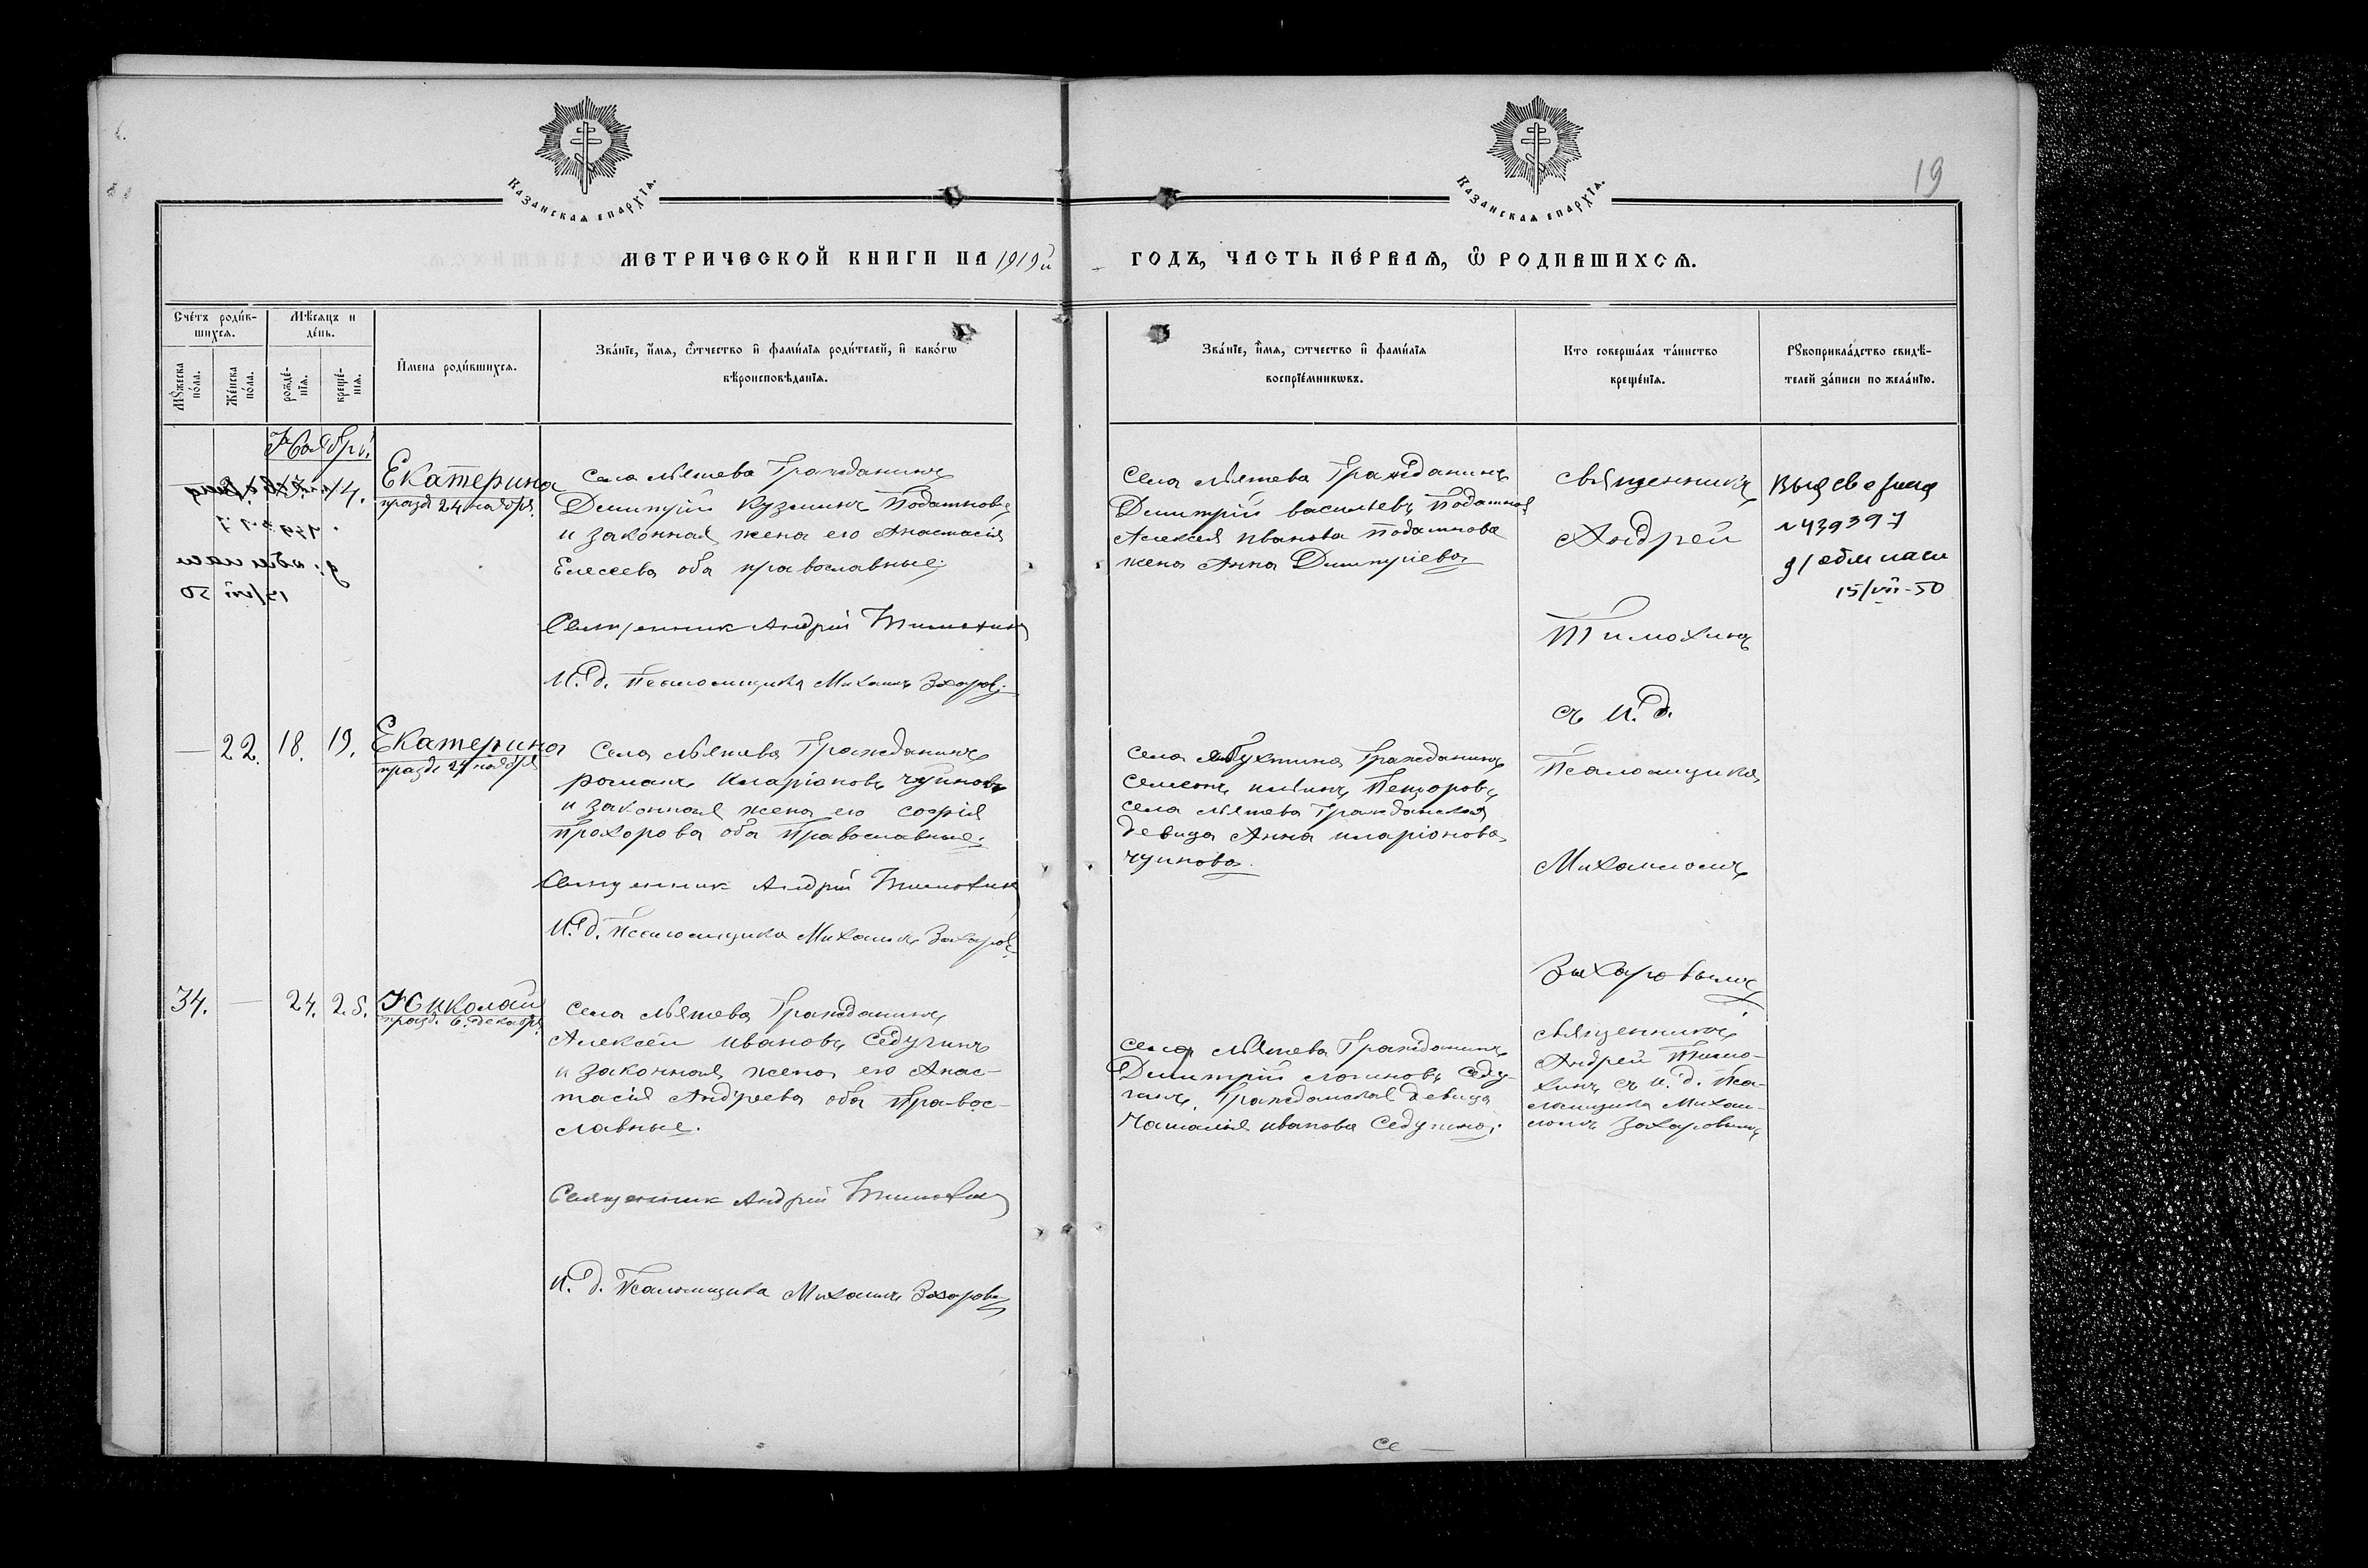 19
Казанская епархїя.
Казанская епархїя.
МЕТРИЧЕСКОЙ КНИГИ НА 1919й
ГОДЪ, ЧАСТЬ ПЕ́РВАѦ, Ѡ҆ РОДИВШИХСѦ.
Сче́тъ роди́в-
шихся.
Мѣ́сяцъ и
де́нь.
Мꙋ́жеска
по́ла.
Же́нска
по́ла.
рожде́-
нїя.
креще́-
нїя.
И҆мена роди́вшихся.
Зва́нїе, и҆́мя, ѻ҆́тчество и҆ фами́лїя роди́телей, и҆ како́гѡ
вѣроисповѣ́данїя.
Зва́нїе, и҆́мя, ѻ҆́тчество и҆ фами́лїя
воспрїе́мникѡвъ.
Кто соверша́лъ та́инство
креще́нїя.
Рꙋкоприкла́дство свидѣ́-
телей за́писи по жела́нїю.
Ноября
14.
Екатерина
празд 24 ноября.
Села Мѣшева Гражданинъ
Димитрій Кузминъ Податновъ
и законная жена его Анастасія
Елесеева оба православные.
Священник Андрій Тимохин
И. д. Псаломщика Михаилъ Захаровъ.
Села Мѣшева Гражданинъ
Димитрій Васильевъ Податнов
Алексея Иванова Податнова
жена Анна Димитріева
Священникъ
Андрей
Тимохинъ
съ И. д.
Псаломщика
Михаиломъ
Захаровымъ
№ 439397
15/VII-50
— 22. 18. 19.
Екатерина
празд 24 ноября
Села Мѣшева Гражданинъ
Романъ Иларіоновъ Чуиновъ
и законная жена его Софія
Прохорова оба Православные.
Священник Андрій Тимохин
И. д. Псаломщика Михаилъ Захаровъ.
Семенъ Ильинъ
Села Мѣшева Гражданская
девица Анна Иларіонова
Чуинова.
34. — 24. 25.
Николай
празд 6. декабря.
Села Мѣшева Гражданинъ
Алексей Ивановъ Седугинъ
и законная жена его Анас-
тасія Андреева оба Правос-
лавные.
Священник Андрій Тимохин
И. д. Псаломщика Михаилъ Захаровъ
Села Мѣшева Гражданинъ
Димитрій Логиновъ Седу-
гинъ, Гражданская девица
Наталія Иванова Седугина.
Священникъ
Андрей Тимо-
хинъ съ и. д. Пса-
ломщика Михаи-
ломъ Захаровымъ